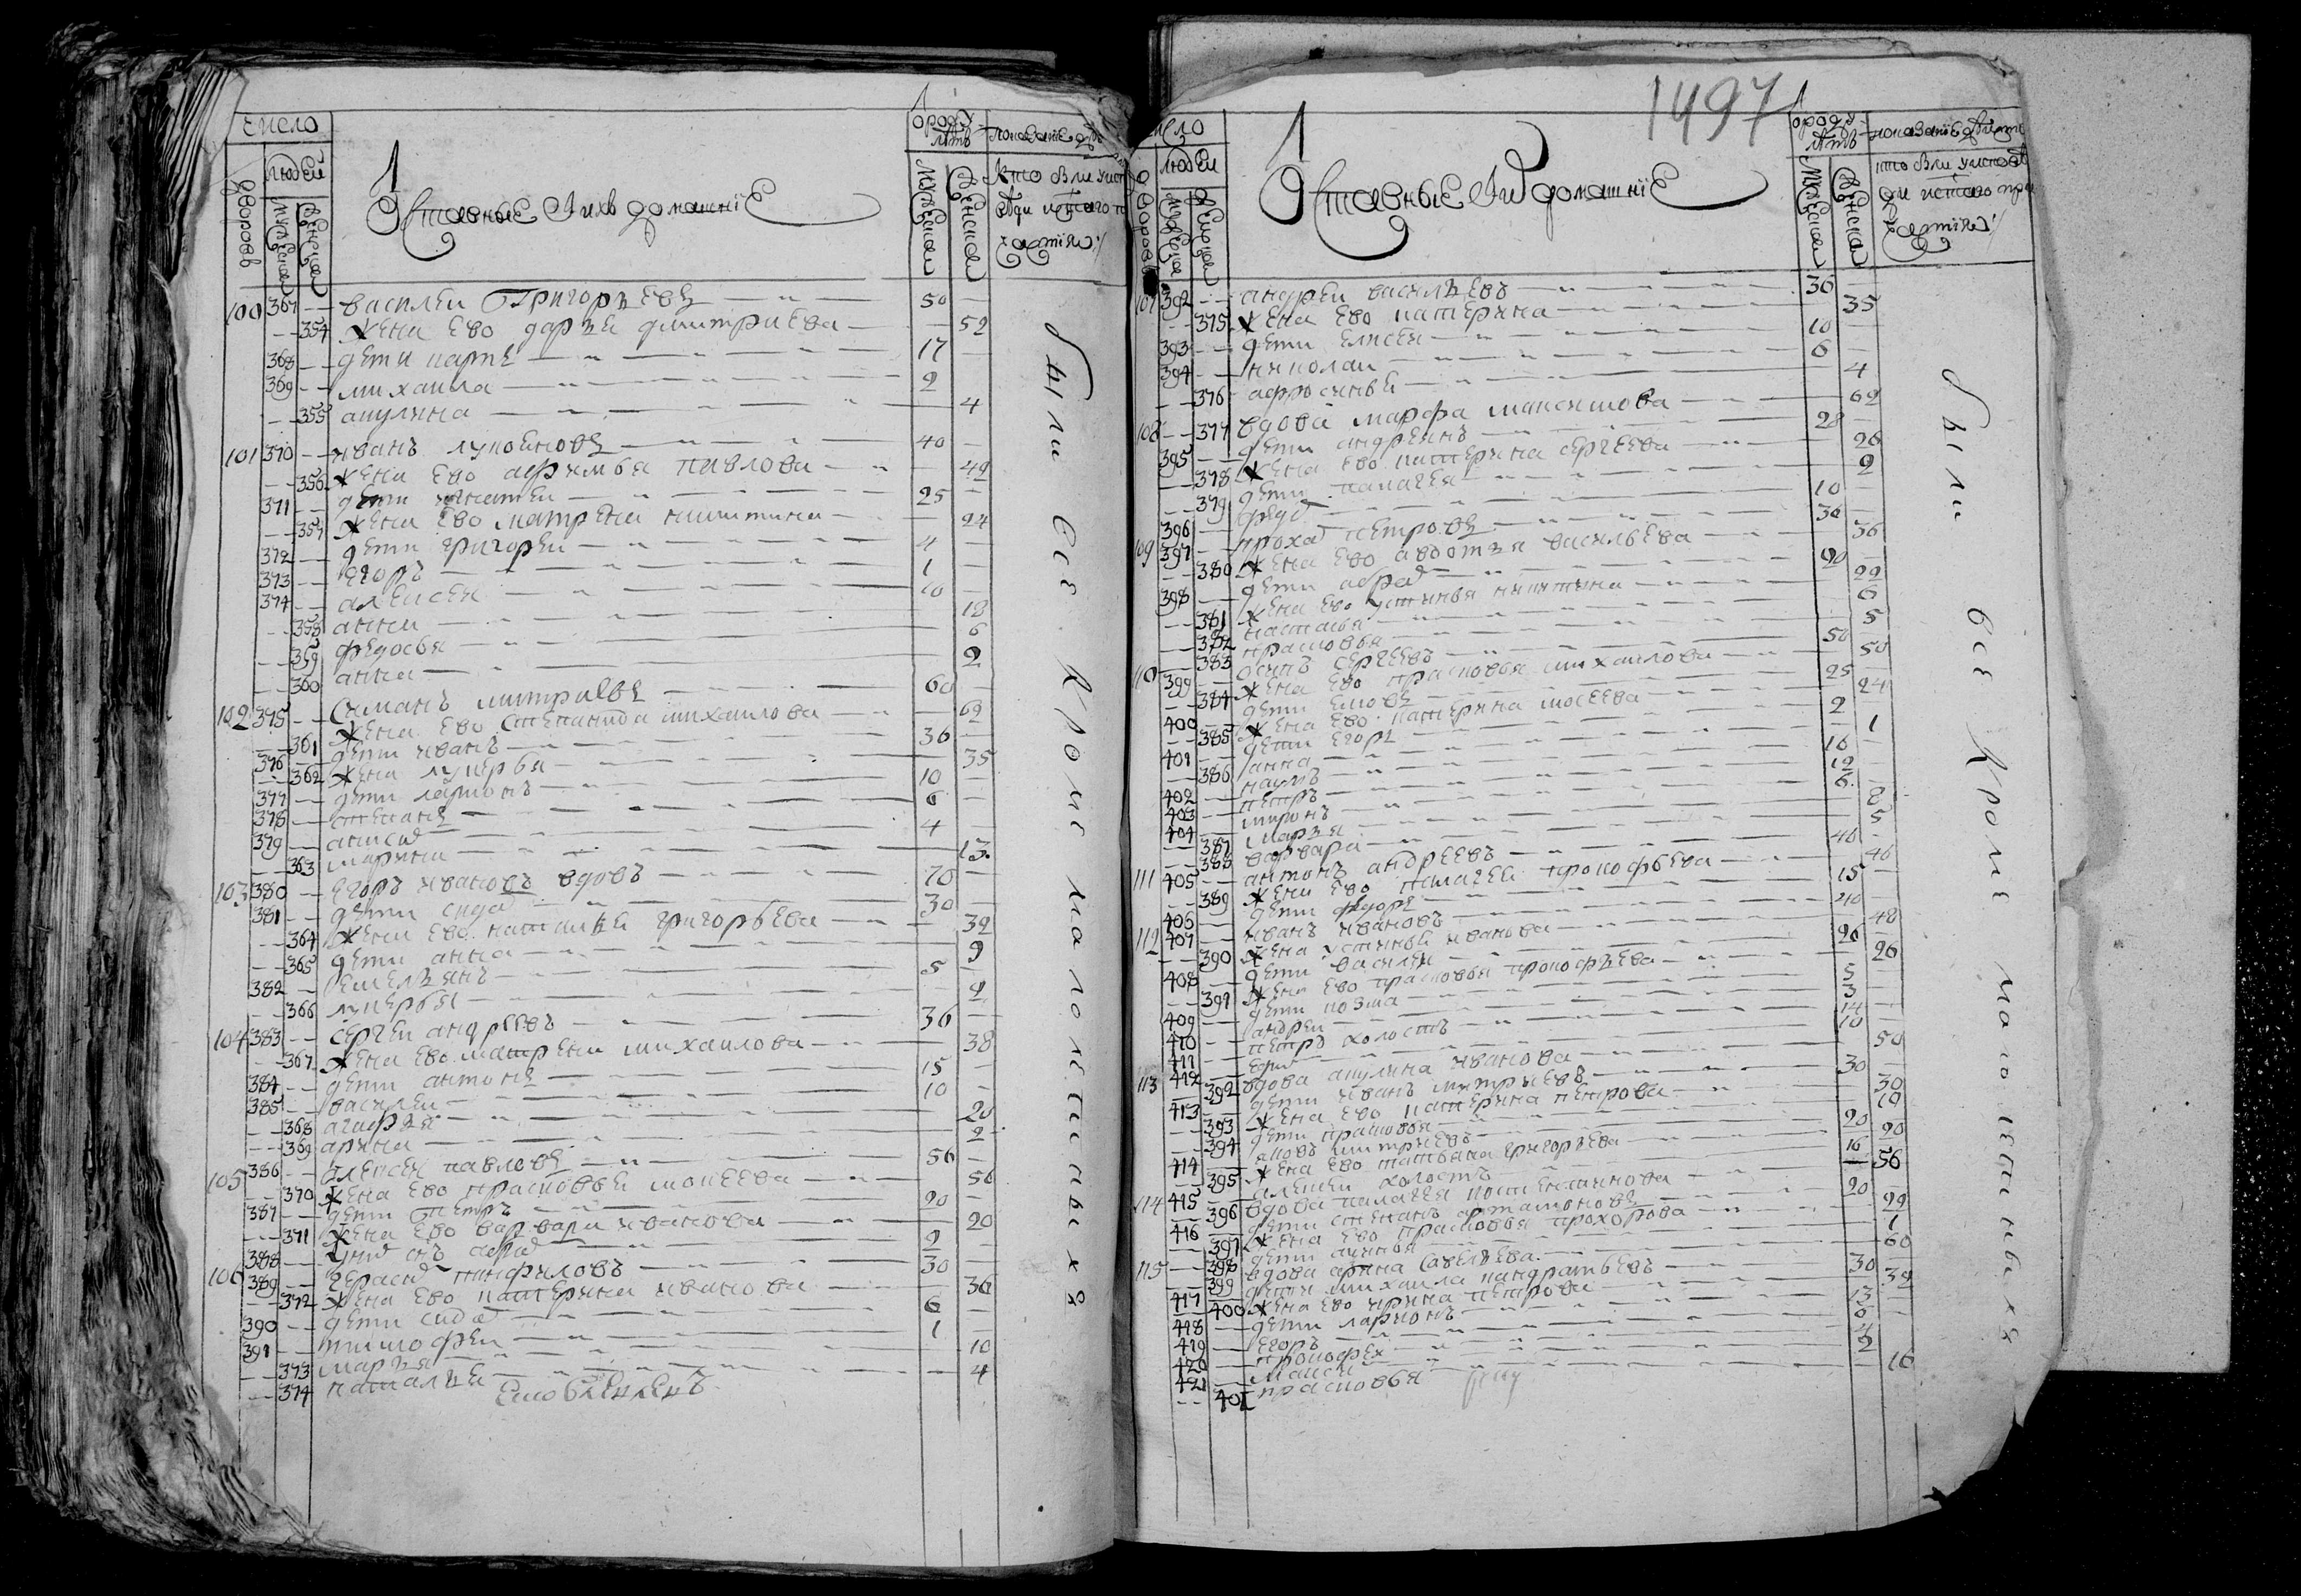 число
людей
дворовъ
мужеска
женска
Отставные и ихъ домашніе
От роду лѣтъ
мужеска
женска
показаніе
кто былъ у исповѣди
100 367 — василеи григорьевъ 50
354 жена ево дарья дмитриева 52
368 — дети карпъ 17
369 — михаила 2
355 акулина 4
101 370 — иванъ лукояновъ 40
356 жена ево афимья павлова 42
371 — дети игнатеи 25
357 жена ево матрена никитина 24
372 — дети григореи 4
373 — егоръ 1
374 — алексеи 10
358 анна 18
359 федосья 6
360 анна 2
102 375 — симанъ митривъ 60
361 жена ево степанида михаилова 62
376 — дети иванъ 36
362 жена лукерья 35
377 — дети ларионъ 10
378 — степанъ 6
379 — анисим 4
363 марина 13
103 380 — егоръ ивановъ вдовъ 70
381 — дети сидор 30
364 жена ево наталья григорьева 32
365 дети анна 9
382 — емельянъ 5
366 лукерья 2
104 383 — сергеи андреевъ 36
367 жена ево матрена михаилова 38
384 — дети антонъ 15
385 — василеи 10
368 агафья 20
369 арина 2
105 386 — алексеи павловъ 56
370 жена ево прасковья моисеева 56
387 — дети петръ 20
371 жена ево варвара иванова 20
388 — сынъ ефрем 2
106 389 — герасим панфиловъ 30
372 жена ево катерина иванова 36
390 — дети сидор 6
391 — тимофеи 1
373 марья 10
374 наталья 4
были все кроме малолетныхъ
1497
число
людей
дворовъ
мужеска
женска
Отставные и ихъ домашніе
От роду лѣтъ
мужеска
женска
показаніе
107 392 — андреи васильевъ 36
375 жена ево катерина 35
393 — дети елисеи 10
394 — николаи 6
376 афросинья 4
108 377 вдова марфа максимова 62
395 — дети андреянъ 28
378 жена ево катерина сергеева 26
379 дети палагея 2
396 — федор 10
109 397 — прохор петровъ 36
380 жена ево авдотья васильева 36
398 — дети ефрем 20
381 жена ево устинья никитина 22
382 наталья 6
383 прасковья 5
110 399 — осипъ сергеевъ 50
384 жена ево прасковья михаилова 50
400 — дети яковъ 25
385 жена ево катерина мосеева 24
401 — дети егоръ 2
386 анна 1
402 — наумъ 16
403 — петръ 12
404 — миронъ 6
387 марья 8
388 варвара 5
111 405 — антонъ андреевъ 46
389 жена ево палагея прокофьева 46
406 — дети федоръ 15
112 407 — иванъ ивановъ 40
390 жена устинья иванова 48
408 — дети василеи 26
391 жена ево прасковья прокофьева 26
409 — дети козма 5
410 — андреи 3
411 — петръ холостъ 14
412 — ефим 10
113 392 вдова акулина иванова 50
413 — дети иванъ митриевъ 30
393 жена ево катерина петрова 30
394 дети прасковья 10
414 — яковъ митриевъ 20
395 жена ево татьяна григорьева 20
415 — алексеи холостъ 16
114 396 вдова палагея костентинова 56
416 — дети степанъ артамоновъ 20
397 жена ево прасковья прохорова 22
398 дети аксинья 1
115 399 вдова арина савельева 60
417 — дети михаила кандратьевъ 30
400 жена ево ирина петрова 32
418 — дети ларионъ 13
419 — егоръ 8
420 — прокофеи 4
421 — максим 2
401 прасковья 16
были все кроме малолетныхъ